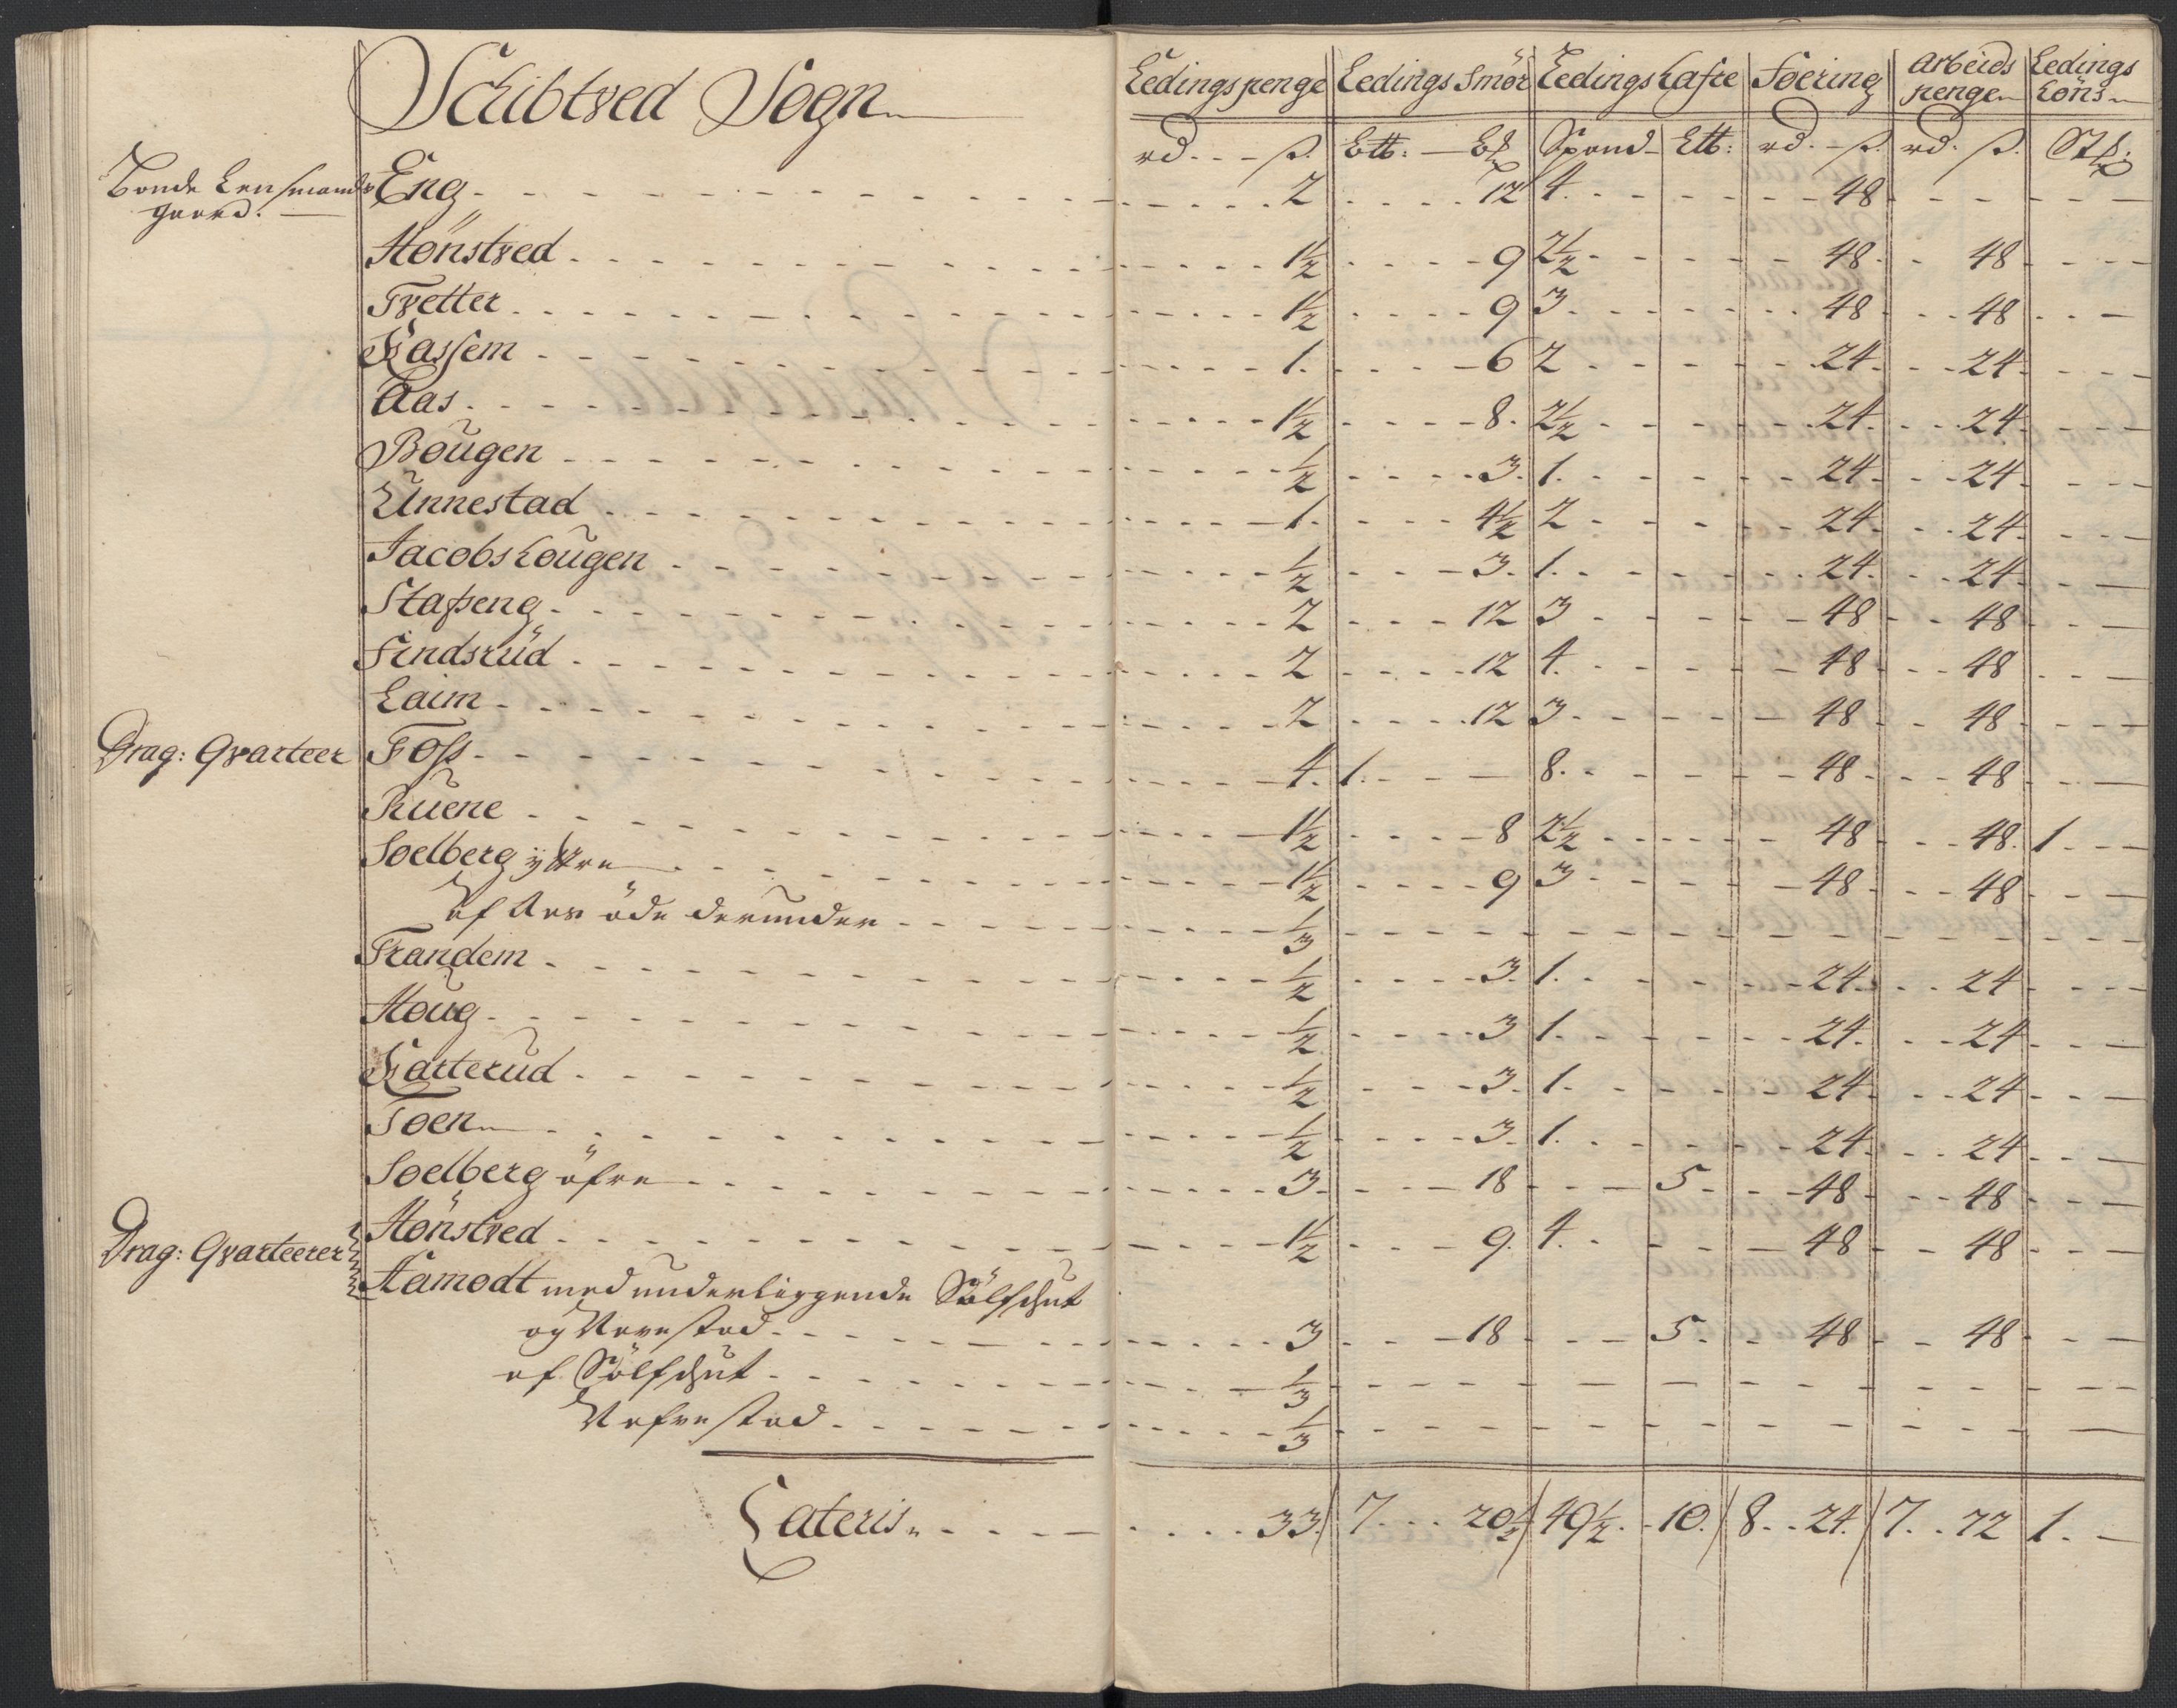 Schibtved Sogn
Ledingspenge Ledings Smör Ledings Kafte Foering Arbeids penge Ledings Köns
rd. ß. Ltt: L℔ Spand Ltt: rd. ß. rd. ß. Stk:
Bonde Lensmands gaard. Eng 2 12 4. 48
Hönstved 1½ 9 2½ 48 48
Tvetter 1½ 9 3 48 48
Kassem 1. 6 2 24 24
Aas 1½ 8. 2½ 24 24
Bougen ½ 3. 1. 24 24
Unnestad 1. 4½ 2 24 24
Jacobskougen ½ 3. 1. 24 24
Stapeng 2 12 3 48 48
Findsrüd 2 12 4. 48 48
Laim 2 12 3 48 48
Drag: Qvarteer Foss 4. 1. 8. 48 48
Ruene 1½ 8 2½ 48 48. 1
Soelberg ÿttre 1½ 9 3 48 48
af Aas öde derunder ⅓
Trandem ½ 3. 1. 24 24
Houg ½ 3 1. 24 24
Karterud ½ 3. 1. 24 24
Toen ½ 3. 1. 24 24
Soelberg öfre 3. 18 5 48 48
Drag: Qvarteerer Hönstved 1½ 9. 4. 48 48
Aamodt med underliggende Sölfschut
og Narestad 3 18 5. 48 48
af Sölfschut ⅓
Narestad ⅓
Lateris 33. 7. 20½ 49½ 10. 8. 24. 7. 72 1.